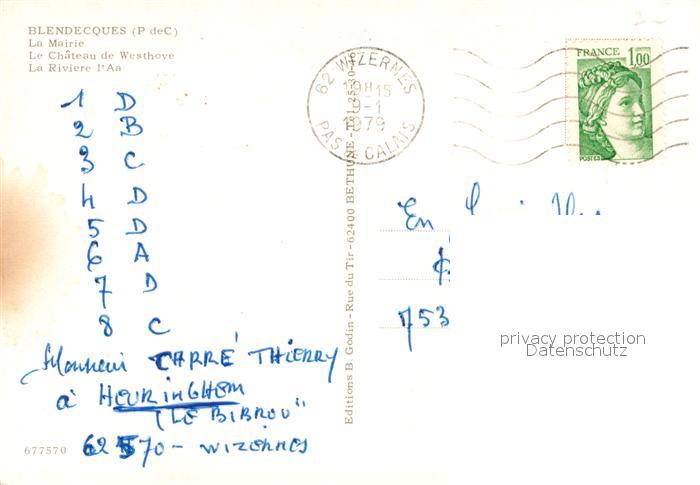 BLENDECQUES (P deC)
La Mairie
Le Château de Westhove
La Riviere l'Aa
62 WIZERNES
19H15
9-1
1979
PAS DE CALAIS
FRANCE 1,00
POSTES
1 D
2 B
3 C
4 D
5 D
6 A
7 D
8 C
Monsieur CARRÉ THIERRY
à HEURINGHEM
"LE BIBROU"
62570 - WIZERNES
677570
Editions B. Godin - Rue du Tir - 62400 BETHUNE
En
753
privacy protection
Datenschutz